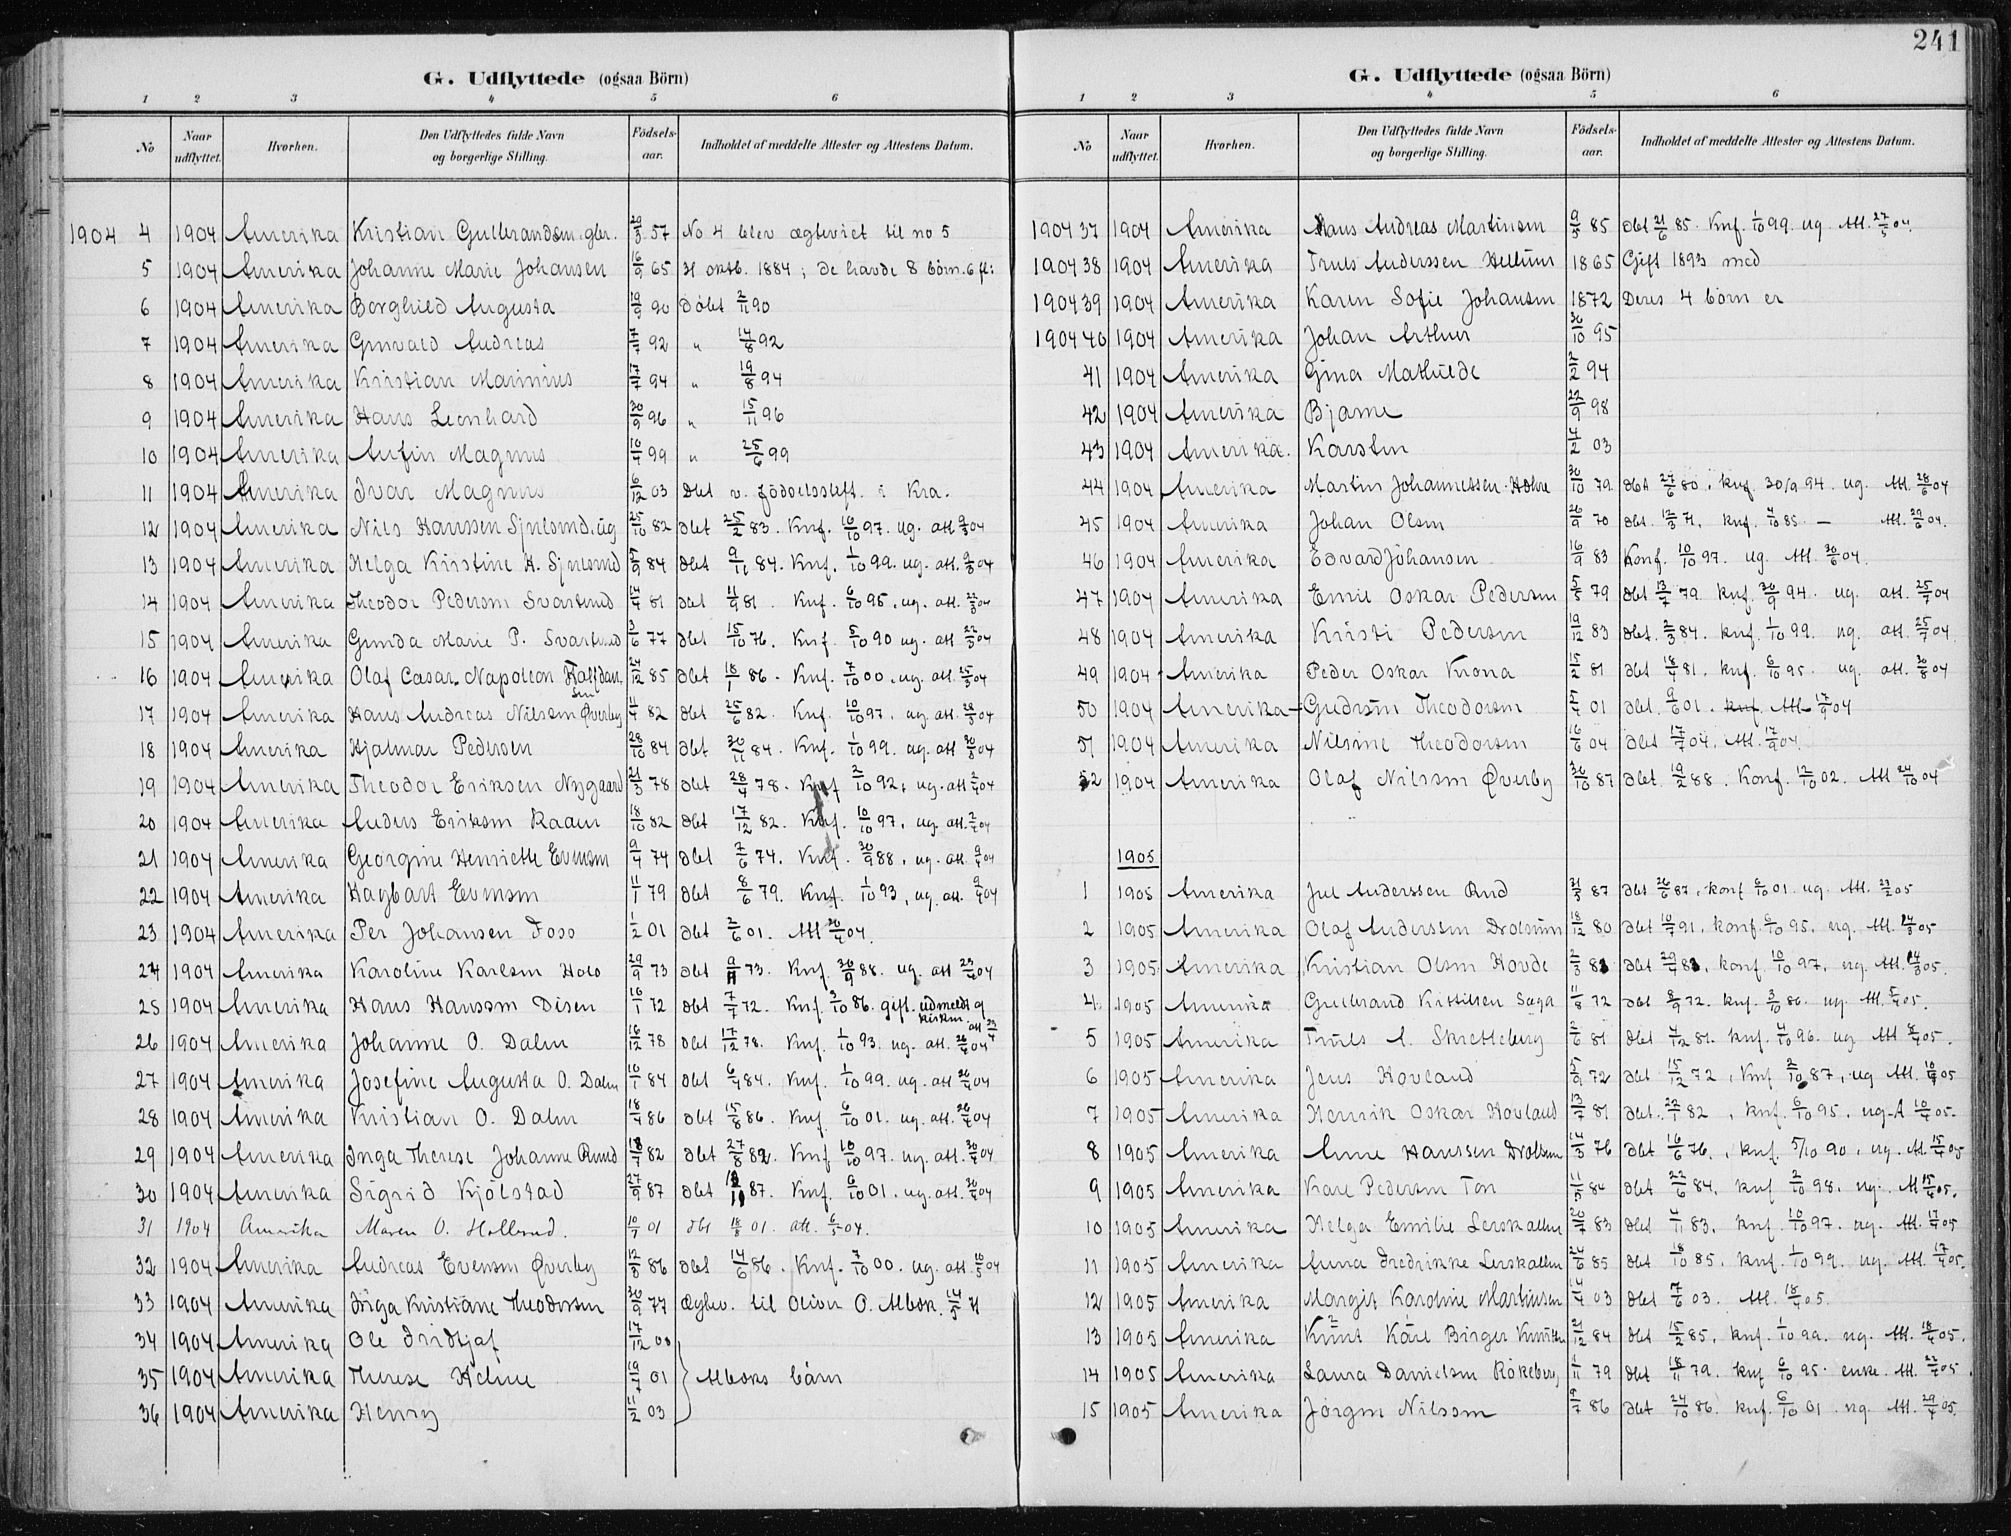 241
G. Udflyttede (ogsaa Börn)
1 2 3 4 5 6
No Naar udflyttet. Hvorhen. Den Udflyttedes fulde Navn og borgerlige Stilling. Födsels-aar. Indholdet af meddelte Attester og Attestens Datum.
1904 4 1904 Amerika Kristian Gulbrandsen gbr. 20/3 57 No 4 blev ægteviet til no 5
5 1904 Amerika Johanne Marie Johansen 16/9 65 H oktb. 1884; De havde 8 börn. 6 fl:
6 1904 Amerika Borghild Augusta 19/9 90 Döbt 2/11 90
7 1904 Amerika Gunvald Andreas 7/7 92 " 14/8 92
8 1904 Amerika Kristian Marinius 17/7 94 " 19/8 94
9 1904 Amerika Hans Leonhard 30/9 96 " 15/11 96
10 1904 Amerika Anfin Magnus 10/4 99 " 25/6 99
11 1904 Amerika Ivar Magnus 6/12 03 Dbt v. födselsstift. i Kra.
12 1904 Amerika Nils Hanssen ug 25/10 82 dbt 25/2 83. Knf. 10/10 97. ug. att. 9/3 04
13 1904 Amerika Helga Kristine H. 5/9 84 dbt 9/11 84. Knf. 1/10 99. ug. att. 9/3 04
14 1904 Amerika Theodor Pedersen Svartsund 14/4 81 dbt 11/9 81. Knf. 6/10 95. ug. att. 22/3 04
15 1904 Amerika Gunda Marie P. Svartsund 3/6 77 dbt 15/10 76. Knf. 5/10 90 ug. att 22/3 04
16 1904 Amerika Olaf Cæsar Napoleon Halfdansen 24/12 85 dbt 18/1 86. Knf. 7/10 00. ug. att. 25/3 04
17 1904 Amerika Hans Andreas Nilsen Øverby 11/4 82 dbt 25/6 82. Knf. 10/10 97. ug. att. 28/3 04
18 1904 Amerika Hjalmar Pedersen 28/10 84 dbt 30/11 84. Knf. 1/10 99. ug. att 30/3 04
19 1904 Amerika Theodor Eriksen Nygaard 21/3 78 dbt 28/4 78. Knf 2/10 92, ug. att 2/4 04
20 1904 Amerika Anders Eriksen Raaen 18/10 82 dbt 17/12 82. Knf. 10/10 97, ug. att. 2/4 04
21 1904 Amerika Georgine Henriette Evensen 9/4 74 dbt 7/6 74. Knf. 30/9 88, ug. att. 9/4 04
22 1904 Amerika Hagbart Evensen 11/1 79 dbt 8/6 79. Knf. 1/10 93, ug. att. 9/4 04
23 1904 Amerika Per Johansen Foss 1/2 01 dbt 2/6 01. Att 20/4 04.
24 1904 Amerika Karoline Karlsen Holo 29/9 73 dbt 9/11 73. Knf. 30/9 88. ug. att 23/4 04
25 1904 Amerika Hans Hanssen Disen 16/1 72 dbt 7/7 72. Knf. 3/10 86. gift. udmeldt af kirken. att 23/4
26 1904 Amerika Johanne O. Dalen 16/12 78 dbt 17/12 78. Knf. 1/10 93. ug. att. 26/4 04
27 1904 Amerika Josefine Augusta O. Dalen 10/1 84 dbt 6/4 84. Knf. 1/10 99. ug. att 26/4 04
28 1904 Amerika Kristian O. Dalen 18/4 86 dbt 15/8 86. Knf. 6/10 01. ug. att. 26/4 04
29 1904 Amerika Inga Therese Johanne Ruud 18/7 82 dbt 27/8 82. Knf 10/10 97. ug. att. 30/4 04
30 1904 Amerika Sigrid Kjölstad 27/9 87 dbt 87. Knf. 6/10 01. ug. att. 30/4 04
31 1904 Amerika Maren O. Hollerud. 10/7 01 dbt 18/8 01. att. 6/5 04.
32 1904 Amerika Andreas Evensen Øverby 12/3 86 dbt 14/6 86. Knf. 7/10 00. ug. att 10/5 04
33 1904 Amerika Inga Kristiane Theodorsen 30/9 77 Ægtev. til Oliver O. Mbok. 14/5
34 1904 Amerika Ole Fridtjof 17/12 00
35 1904 Amerika Therese Helene 19/7 01 Mboks börn
36 1904 Amerika Henry 11/2 03
G. Udflyttede (ogsaa Börn)
1 2 3 4 5 6
No Naar udflyttet. Hvorhen. Den Udflyttedes fulde Navn og borgerlige Stilling. Födsels-aar. Indholdet af meddelte Attester og Attestens Datum.
1904 37 1904 Amerika Hans Andreas Martinsen 9/5 85 dbt 21/6 85. Knf. 1/10 99. ug. Att. 27/5 04.
1904 38 1904 Amerika Truls Anderssen Hellum 1865 Gift 1893 med
1904 39 1904 Amerika Karen Sofie Johansen 1872 Deres 4 börn er
1904 40 1904 Amerika Johan Arthur 30/10 95
41 1904 Amerika Gina Mathilde 2/2 94
42 1904 Amerika Bjarne 22/9 98
43 1904 Amerika. Karsten 4/2 03
44 1904 Amerika Martin Johannessen 30/10 79 dbt 27/6 80. knf. 30/9 94. ug. Att. 28/6 04
45 1904 Amerika Johan Olsen 26/9 70 dbt. 12/3 71, knf. 4/10 85. — Att. 29/6 04.
46 1904 Amerika Edvard Johansen 16/9 83 Konf. 10/10 97. ug. Att. 30/6 04.
47 1904 Amerika Emil Oskar Pedersen 5/5 79 dbt 13/7 79. knf. 30/9 94. ug. att. 25/7 04
48 1904 Amerika Kristi Pedersen 19/12 83 dbt. 2/3 84. knf. 1/10 99. ug. att. 25/7 04.
49 1904 Amerika Peder Oskar Krona 15/2 81 dbt 18/4 81. knf. 6/10 95. ug. att. 30/8 04
50 1904 Amerika Gudrun Theodorsen 5/4 01 dbt. 9/6 01. knf. Att. 17/9 04
51 1904 Amerika Nilsine Theodorsen 16/6 04 dbt 17/7 04. Att. 17/9 04.
52 1904 Amerika Olaf Nilssen Øverby 30/10 87 dbt. 19/2 88. Konf. 12/10 02. Att 24/10 04
1905
1 1905 Amerika Jul Anderssen Rud 21/5 87 dbt 26/6 87, konf 6/10 01. ug. Att. 23/2 05
2 1905 Amerika Olaf Anderssen Drolsum 18/12 80 dbt 10/7 91, konf. 6/10 95, ug. Att. 14/3 05
3 1905 Amerika Kristian Olsen Hovde 2/3 83 dbt 29/4 83, konf. 10/10 97, ug. Att. 24/3 05.
4 1905 Amerika Gulbrand Kittilsen Saga 11/8 72 dbt 8/9 72. knf. 3/10 86. ug. Att. 5/4 05.
5 1905 Amerika Truls A. Skretteberg 2/6 81 dbt 4/12 81. knf. 4/10 96. ug Att 8/4 05.
6 1905 Amerika Jens Hovland 5/9 72 dbt 15/12 72, Knf 2/10 87, ug Att. 10/4 05
7 1905 Amerika Henrik Oskar Hovland 13/7 81 dbt. 22/1 82, knf. 6/10 95, ug. A 10/4 05.
8 1905 Amerika Anne Hanssen Drolsum 14/3 76 dbt 16/6 76., knf. 5/10 90, ug. At. 15/4 05
9 1905 Amerika Kare Pedersen Ton 11/5 84 dbt 22/6 84, knf 2/10 98. ug. At 15/4 05.
10 1905 Amerika Helga Emilie Lerskallen 20/7 83 dbt 4/11 83, knf. 10/10 97. ug. Att. 17/4 05
11 1905 Amerika Anna Fredrikke Lerskallen 24/6 85 dbt 18/10 85, knf. 1/10 99. ug Att. 17/4 05.
12 1905 Amerika Margit Karoline Martinsen 14/4 03 dbt 7/6 03. Att. 18/4 05.
13 1905 Amerika Knut Karl Birger 21/12 84 dbt 15/2 85, knf. 1/10 99. ug. Att. 18/4 05.
14 1905 Amerika Laura Danielsen Rökeberg 1/11 79 dbt 18/11 79. knf 6/10 95. enke. Att. 22/4 05.
15 1905 Amerika Jörgen Nilssen 9/7 86 dbt 24/10 86. knf. 6/10 01. ug. Att. 29/4 05.